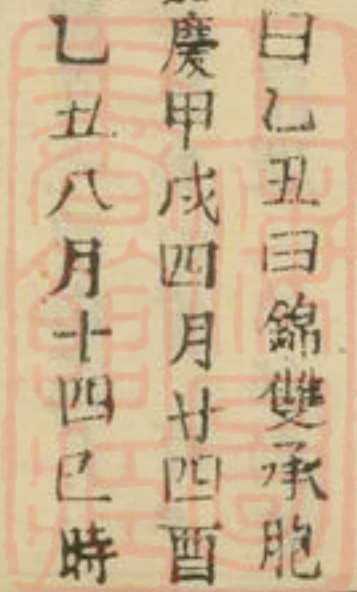 曰乙丑曰錦雙承胞
慶甲戌四月廿四酉
乙丑八月十四巳時